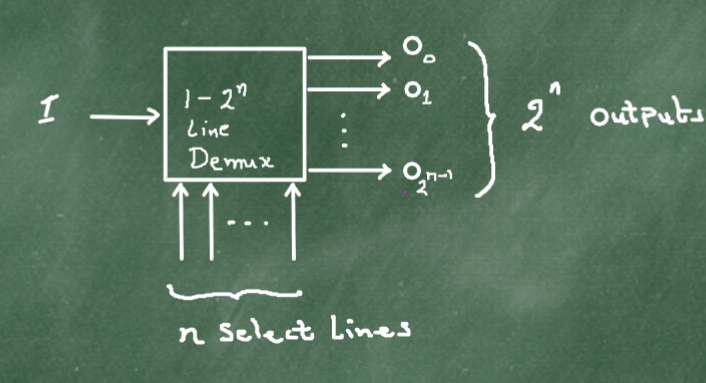 I
1 - 2ⁿ
Line
Demux
O₀
O₁
O₂ⁿ⁻¹
2ⁿ outputs
n Select Lines